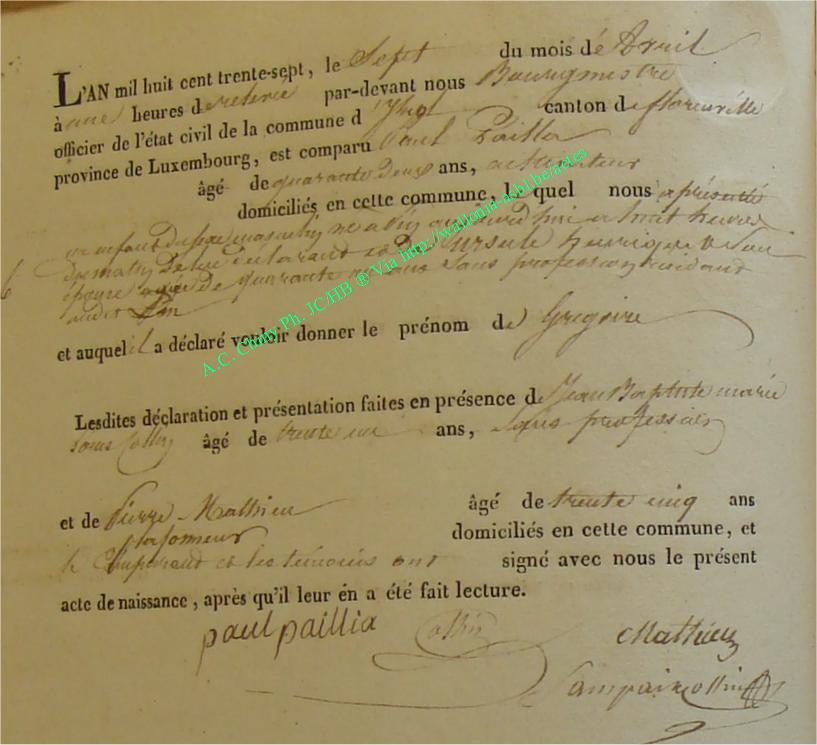 L'AN mil huit cent trente-sept, le Sept du mois dé Avril
à une heures de relevée par-devant nous Bourgmestre
officier de l'état civil de la commune d'Izel canton de florenville
province de Luxembourg, est comparu Paul Paillia
âgé de quarante deux ans, cultivateur
domiciliés en cette commune, lequel nous a présenté
un enfant du sexe masculin né à aujourd'hui à huit heures
du matin de lui déclarant et de Ursule Son
épouse agée de quarante ans Sans profession résidant
audit
et auquel il a déclaré vouloir donner le prénom de Grégoire
Lesdites déclaration et présentation faites en présence de Jean Baptiste marie
Collin âgé de trente un ans, Sans profession
et de Pierre Mathieu âgé de trente cinq ans
plafonneur domiciliés en cette commune, et
le Comparant et les témoins ont signé avec nous le présent
acte de naissance, après qu'il leur en a été fait lecture.
paul paillia Collin Mathieu
A.C. Chiny Ph. JC/HB ® Via http://wallonia-asbl.be/actes